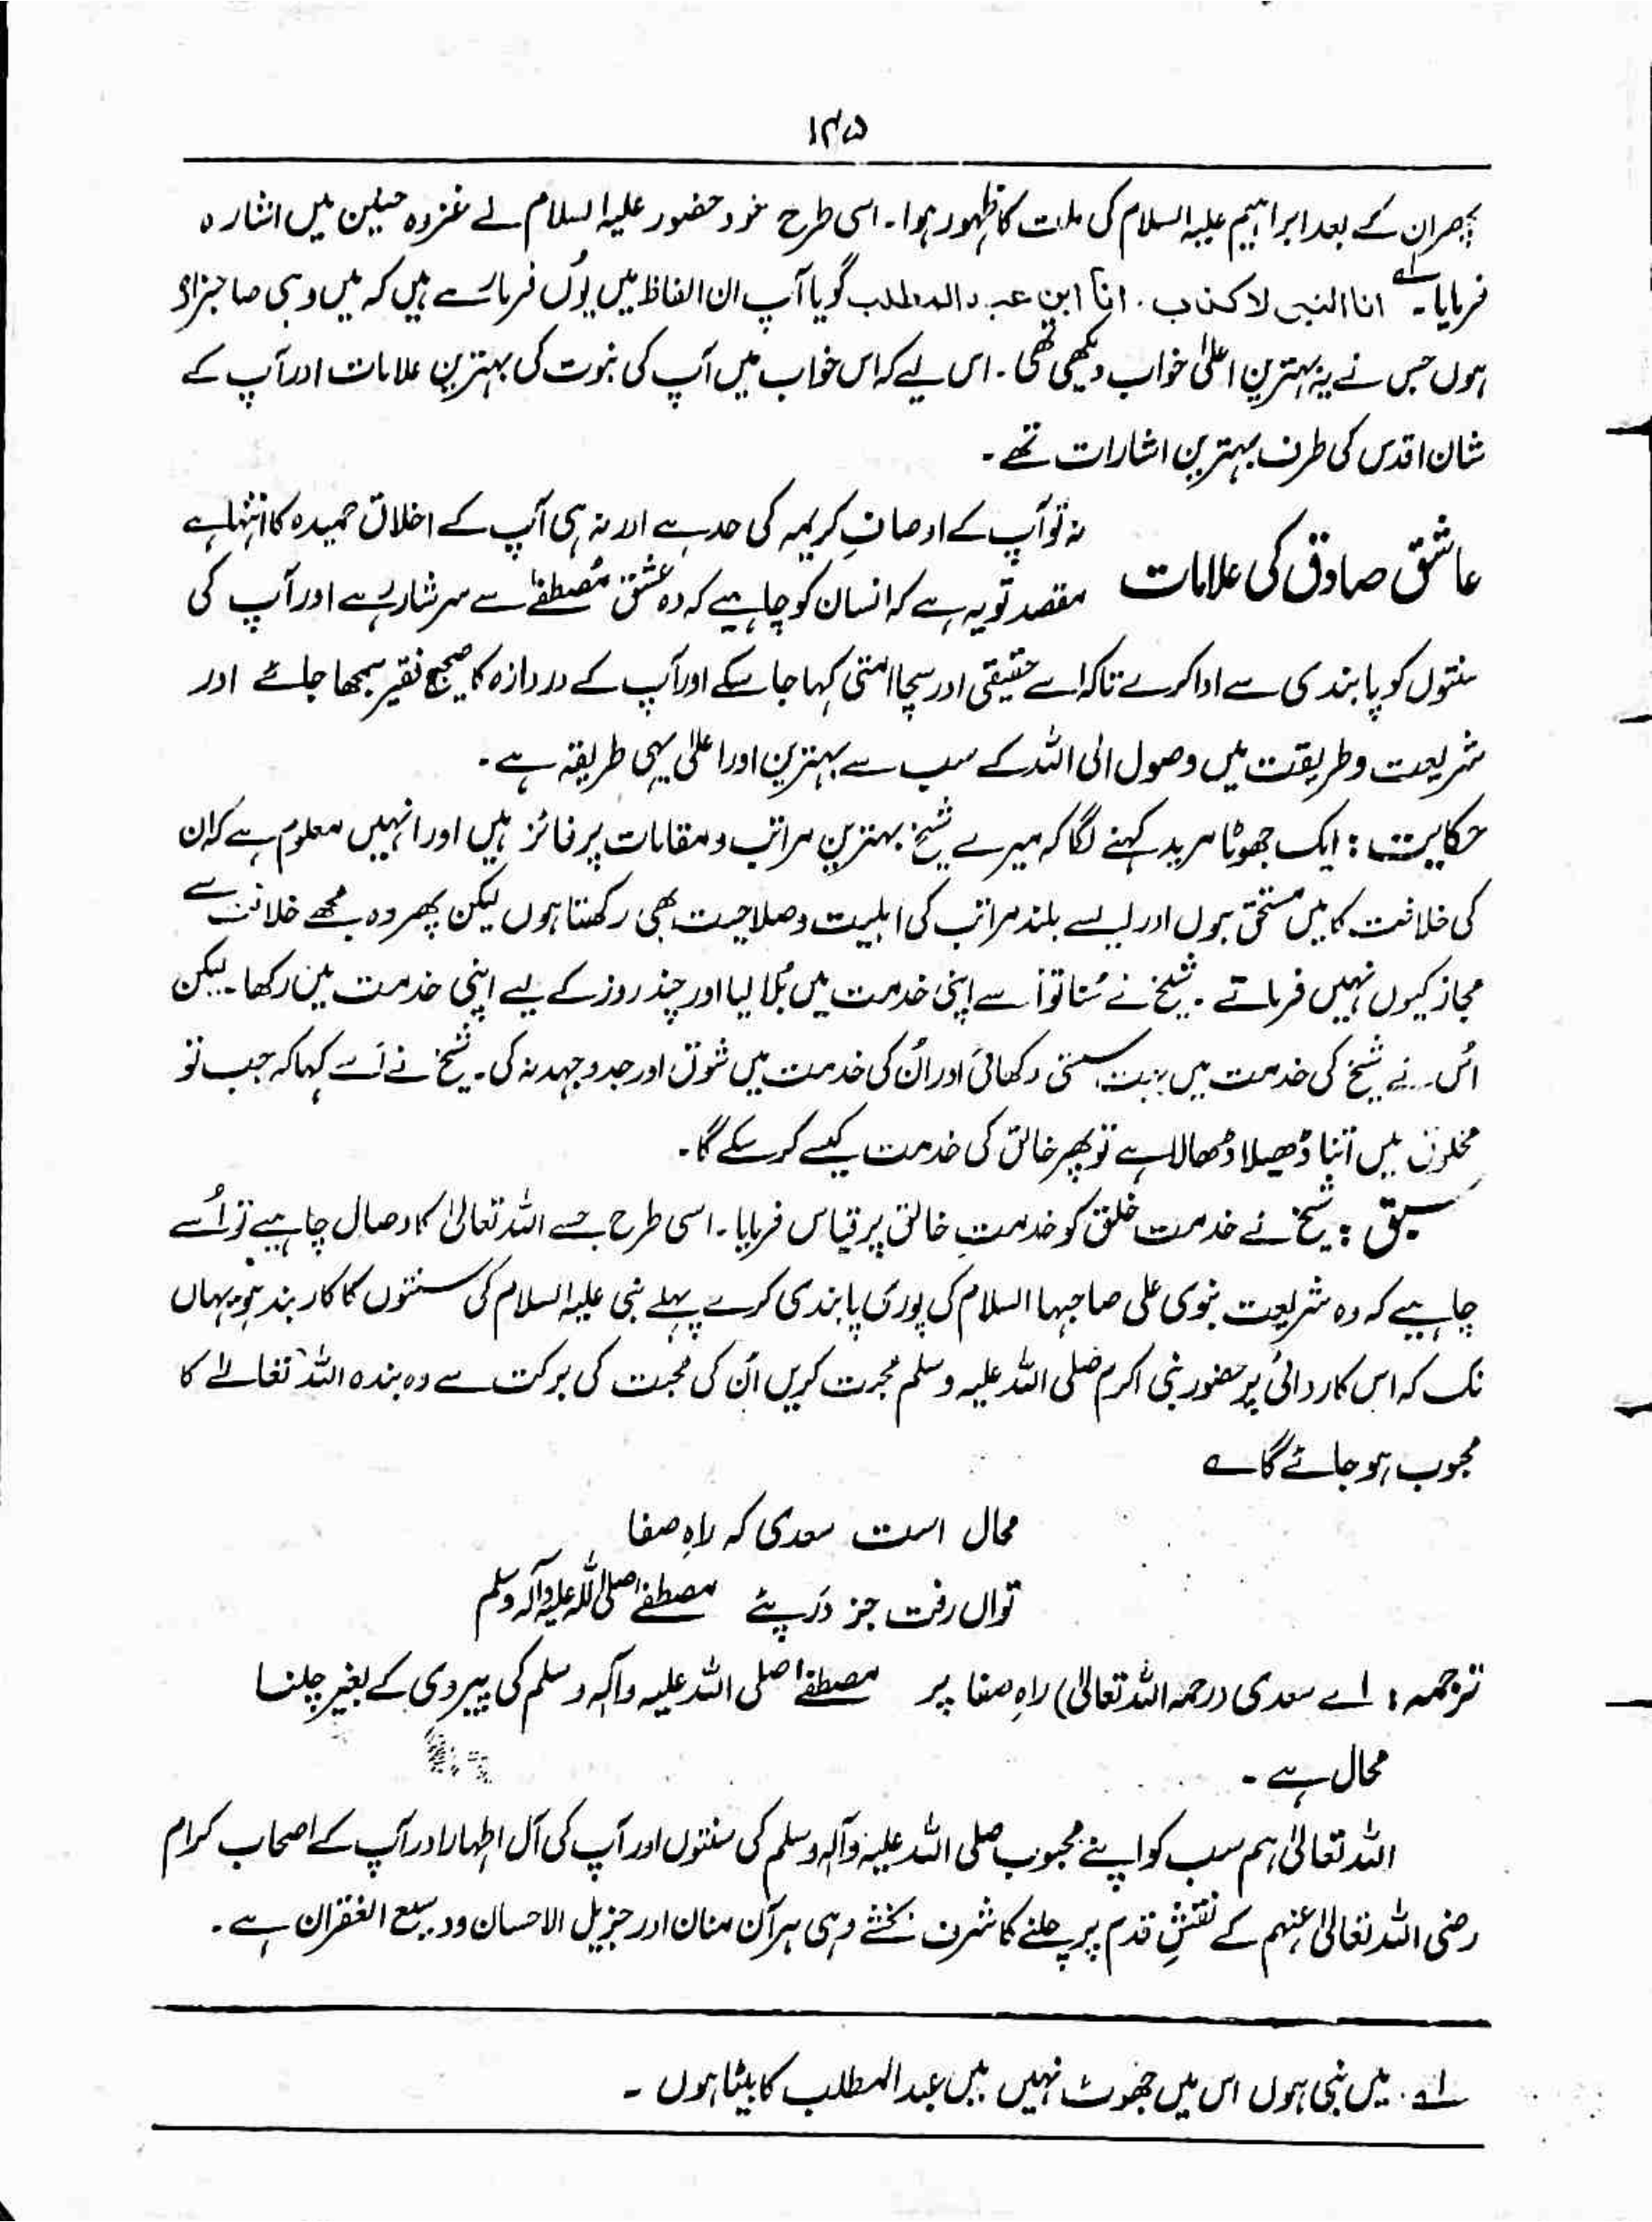 ۱۴۵
پھر ان کے بعد ابراہیم علیہ السلام کی ملت کا ظہور ہوا۔ اسی طرح خود حضور علیہ السلام نے غزوہ حنین میں اشارہ
فرمایا۔ ؎۱ انا النبی لا کذب۔ انا ابن عبد المطلب گویا آپ ان الفاظ میں یوں فرما رہے ہیں کہ میں وہی صاحبزادہ
ہوں جس نے یہ بہترین اعلیٰ خواب دیکھی تھی۔ اس لیے کہ اس خواب میں آپ کی نبوت کی بہترین علامات اور آپ کے
شان اقدس کی طرف بہترین اشارات تھے۔
عاشق صادق کی علامات نہ تو آپ کے اوصافِ کریمہ کی حد ہے اور نہ ہی آپ کے اخلاق حمیدہ کا انتہا ہے
مقصد تو یہ ہے کہ انسان کو چاہیے کہ وہ عشق مُصطفےٰ سے سرشار رہے اور آپ کی
سنتوں کو پابندی سے ادا کرے تاکہ اسے حقیقی اور سچا امتی کہا جا سکے اور آپ کے دروازہ کا صحیح فقیر سمجھا جائے اور
شریعت و طریقت میں وصول الی اللہ کے سب سے بہترین اور اعلیٰ یہی طریقہ ہے۔
حکایت : ایک جھوٹا مرید کہنے لگا کہ میرے شیخ بہترین مراتب و مقامات پر فائز ہیں اور انہیں معلوم ہے کہ ان
کی خلافت کا میں مستحق ہوں اور ایسے بلند مراتب کی اہلیت و صلاحیت بھی رکھتا ہوں لیکن پھر وہ مجھے خلافت سے
مجاز کیوں نہیں فرماتے۔ شیخ نے سُنا تو اُسے اپنی خدمت میں بُلا لیا اور چند روز کے لیے اپنی خدمت میں رکھا۔ لیکن
اُس نے شیخ کی خدمت میں بہت سستی دکھائی اور اُن کی خدمت میں شوق اور جدوجہد نہ کی۔ شیخ نے اُسے کہا کہ جب تو
مخلوق میں اتنا ڈھیلا ڈھالا ہے تو پھر خالق کی خدمت کیسے کر سکے گا۔
سبق : شیخ نے خدمت خلق کو خدمتِ خالق پر قیاس فرمایا۔ اسی طرح جسے اللہ تعالیٰ کا وصال چاہیے تو اُسے
چاہیے کہ وہ شریعت نبوی علی صاحبہا السلام کی پوری پابندی کرے پہلے نبی علیہ السلام کی سنتوں کا کاربند ہو۔ یہاں
تک کہ اس کاروائی پر حضور نبی اکرم صلی اللہ علیہ وسلم محبت کریں اُن کی محبت کی برکت سے وہ بندہ اللہ تعالےٰ کا
محبوب ہو جائے گا ؎
محال است سعدی کہ راہِ صفا
تواں رفت جز در پئے مصطفےٰ صلی اللہ علیہ وآلہ وسلم
ترجمہ : اے سعدی (رحمہ اللہ تعالیٰ) راہِ صفا پر مصطفےٰ صلی اللہ علیہ وآلہ وسلم کی پیروی کے بغیر چلنا
محال ہے۔
اللہ تعالیٰ ہم سب کو اپنے محبوب صلی اللہ علیہ وآلہ وسلم کی سنتوں اور آپ کی آل اطہار اور آپ کے اصحاب کرام
رضی اللہ تعالیٰ عنہم کے نقشِ قدم پر چلنے کا شرف بخشے وہی ہر آن منان اور جزیل الاحسان و وسیع الغفران ہے۔
؎۱۔ میں نبی ہوں اس میں جھوٹ نہیں میں عبد المطلب کا بیٹا ہوں۔